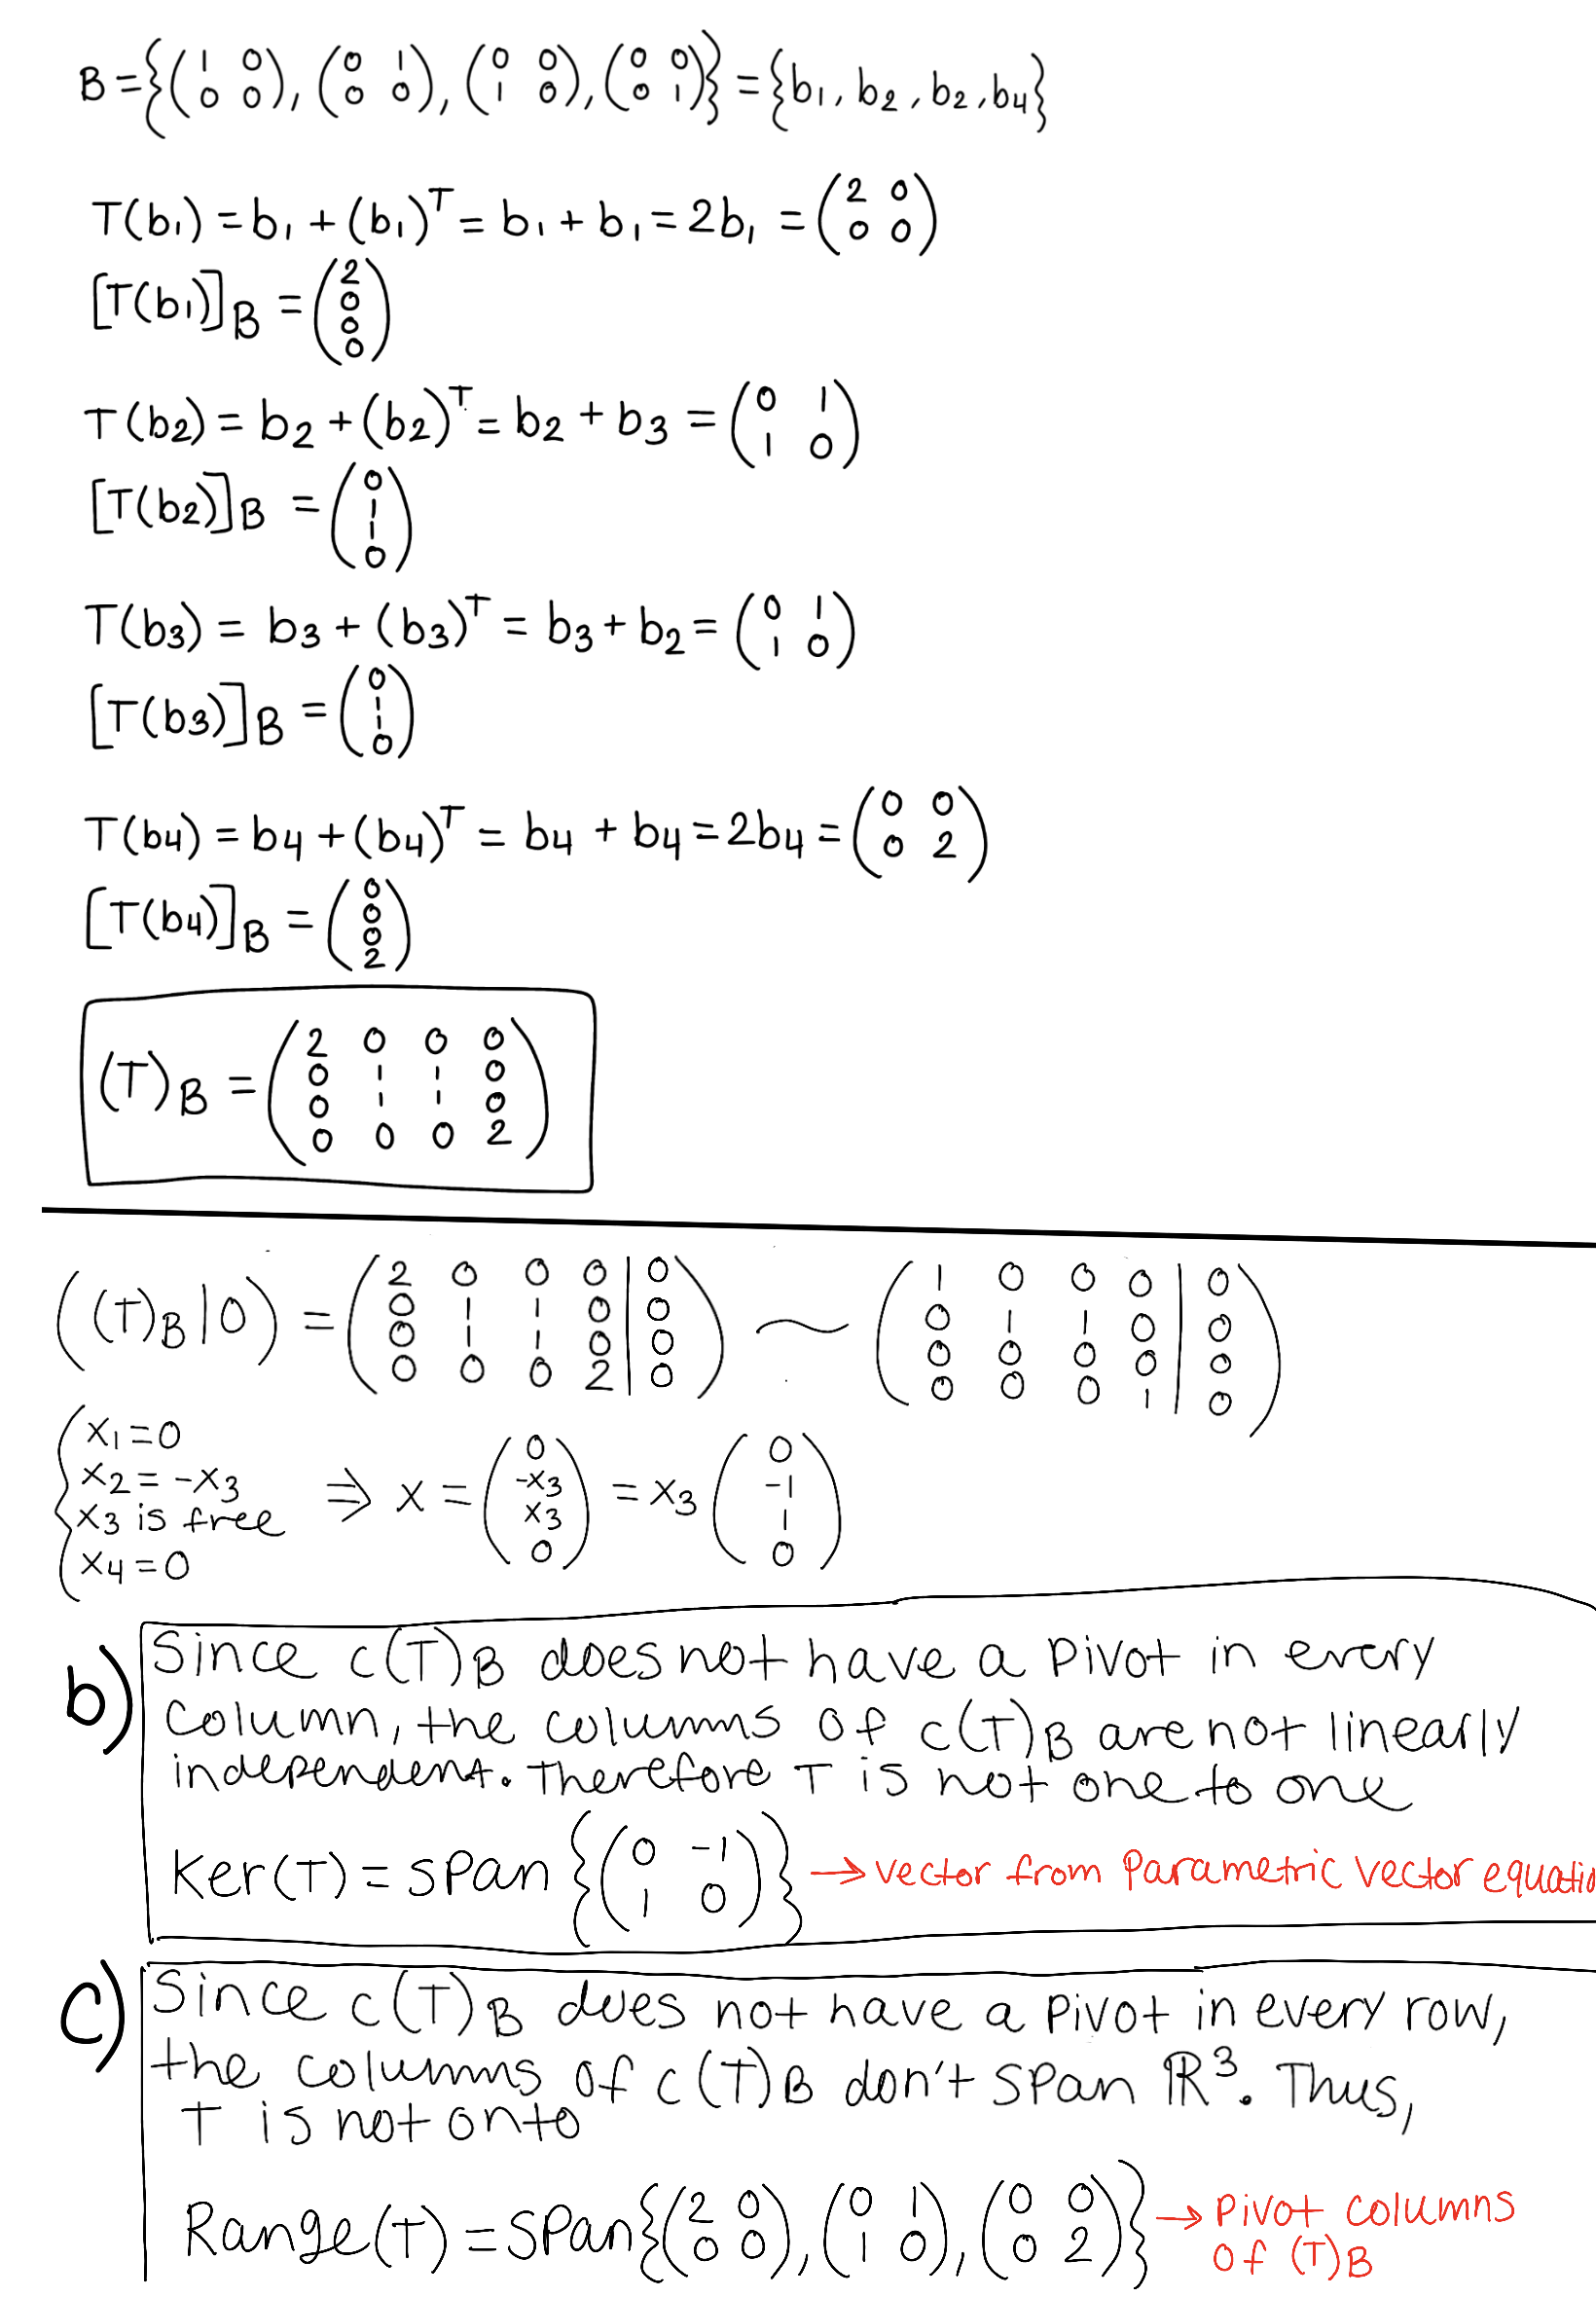 B = {(1 0 0 0), (0 1 0 0), (0 0 1 0), (0 0 0 1)} = {b1, b2, b2, b4}
T(b1) = b1 + (b1)^T = b1 + b1 = 2b1 = (2 0 0 0)
[T(b1)]B = (2 0 0 0)
T(b2) = b2 + (b2)^T = b2 + b3 = (0 1 1 0)
[T(b2)]B = (0 1 1 0)
T(b3) = b3 + (b3)^T = b3 + b2 = (0 1 1 0)
[T(b3)]B = (0 1 1 0)
T(b4) = b4 + (b4)^T = b4 + b4 = 2b4 = (0 0 0 2)
[T(b4)]B = (0 0 0 2)
(T)B = (2 0 0 0
0 1 1 0
0 1 1 0
0 0 0 2)
((T)B | 0) = (2 0 0 0 | 0 ~ (1 0 0 0 | 0
0 1 1 0 | 0 0 1 1 0 | 0
0 1 1 0 | 0 0 0 0 0 | 0
0 0 0 2 | 0) 0 0 0 1 | 0)
{x1 = 0
x2 = -x3
x3 is free ⇒ x = (0 -x3 x3 0) = x3 (0 -1 1 0)
x4 = 0
b) Since c(T)B does not have a pivot in every
column, the columns of c(T)B are not linearly
independent. Therefore T is not one to one
Ker(T) = span {(0 -1 1 0)} → vector from parametric vector equatio
c) Since c(T)B does not have a pivot in every row,
the columns of c(T)B don't span ℝ³. Thus,
T is not onto
Range(T) = span{(2 0 0 0), (0 1 1 0), (0 0 0 2)} → pivot columns
of (T)B